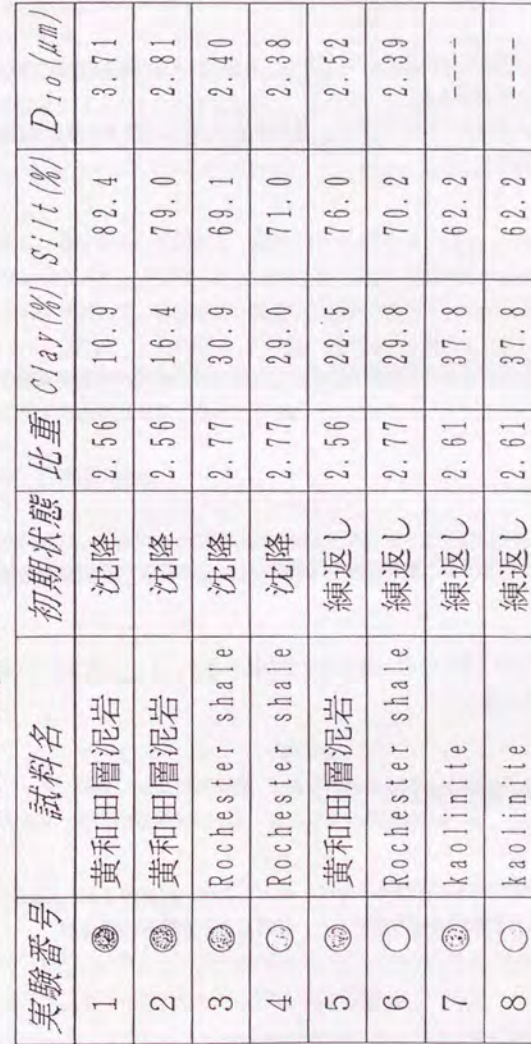 実験番号 試料名 初期状態 比重 Clay(%) Silt(%) D₁₀(μm)
1 黄和田層泥岩 沈降 2.56 10.9 82.4 3.71
2 黄和田層泥岩 沈降 2.56 16.4 79.0 2.81
3 Rochester shale 沈降 2.77 30.9 69.1 2.40
4 Rochester shale 沈降 2.77 29.0 71.0 2.38
5 黄和田層泥岩 練返し 2.56 22.5 76.0 2.52
6 Rochester shale 練返し 2.77 29.8 70.2 2.39
7 kaolinite 練返し 2.61 37.8 62.2 ----
8 kaolinite 練返し 2.61 37.8 62.2 ----